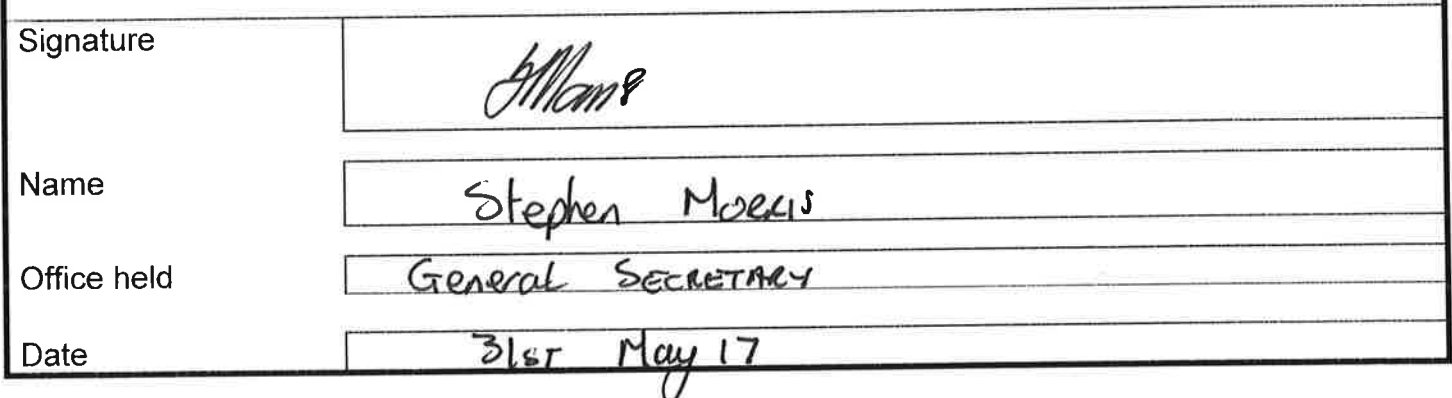 Signature
Name Stephen Morris
Office held General SECRETARY
Date 31st May 17